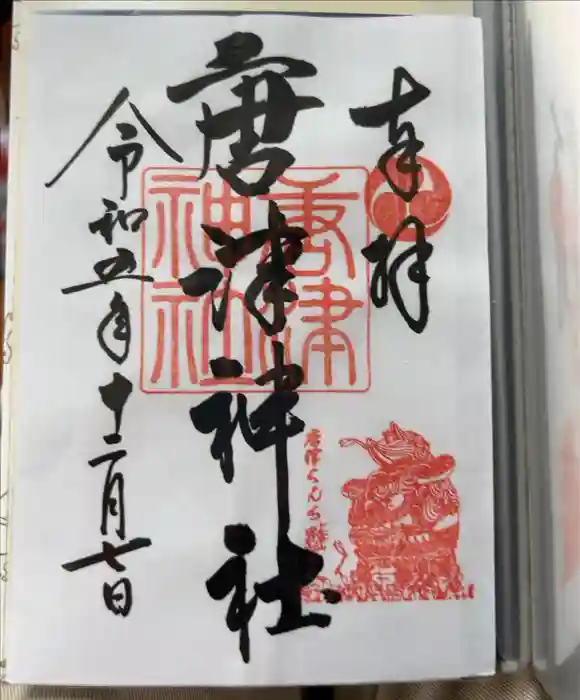 奉拝
唐津神社
令和五年十二月七日
唐津神社
唐津くんち